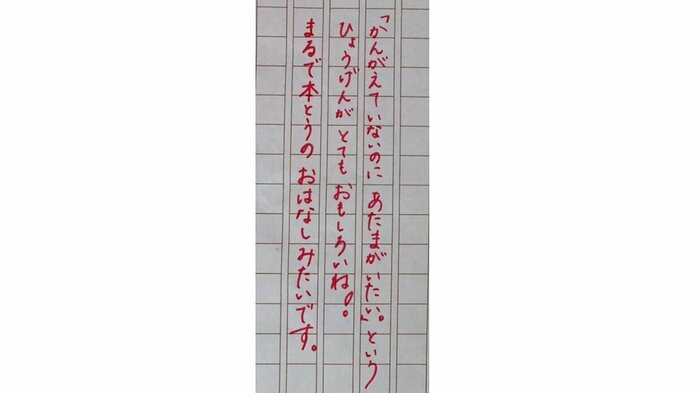 「かんがえていないのに あたまがいたい。」という
ひょうげんが とても おもしろいね!。
まるで本とうの おはなしみたいです。